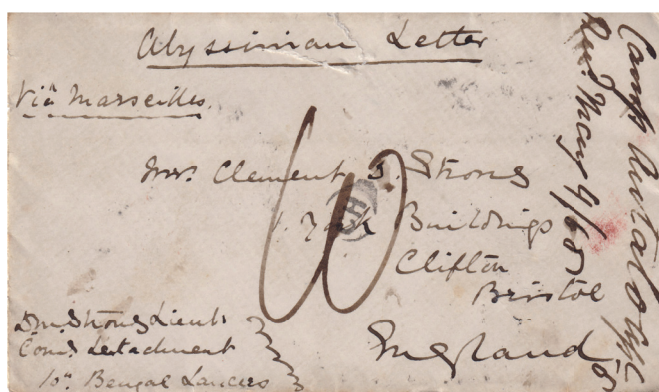 Abyssinian Letter
Via Marseilles
Mrs. Clement D. Strong
1. York Buildings
Clifton
Bristol
England
D. M. Strong Lieut
Comg Detachment
10th Bengal Lancers
Camp
Recd. May 9/68